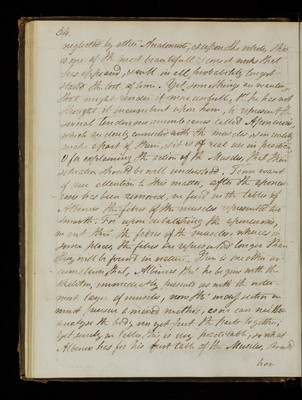 34.
neglected by other Anatomists, & upon the whole, this
is one of the most beautifull & correct works that
has appeared, & will in all probability long out
stand the test of time. Yet some things are wanting
that might render it more usefull, & he has not
thought it incumbent upon him, to represent the
several tendinous membranes called Aponeuroses
which are closely connected with the muscles, & in reality
make a part of them, & it is of real use in practice
& for explaining the action of the Muscles, that their
situation should be well understood. From want
of due attention to this matter, after the aponeu-
roses has been removed, we find in the tables of
Albinus the fibres of the muscles represented too
smooth. For upon dissecting the aponeuroses,
we cut thro' the fibres of the muscles, whence in
some places the fibres are represented longer than
they will be found in nature. There is one other
circumstance, that Albinus tho' he begins with the
skeleton, immediately presents us with the outer-
most layer of muscles, now tho' in dissection we
must pursue a mixed method, as we can neither
analyse the body nor yet put the parts together,
yet surely in tables this is very practicable, so what
Albinus has for his first table of the Muscles, should
have